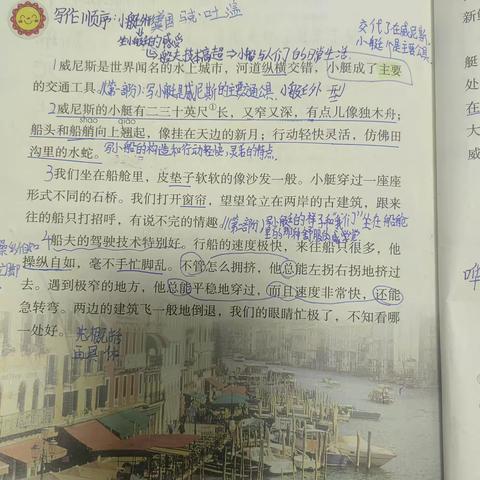 写作顺序:小艇外形 美国 马克·吐温
坐小艇的感受
船夫技术高超→小艇与人们的日常生活
交代了在威尼斯
小艇是主要工具
1威尼斯是世界闻名的水上城市,河道纵横交错,小艇成了主要
的交通工具。
2威尼斯的小艇有二三十英尺①长,又窄又深,有点儿像独木舟;
shāo qiào
船头和船艄向上翘起,像挂在天边的新月;行动轻快灵活,仿佛田
沟里的水蛇。写小船的构造和行动轻快,灵活的特点.
3我们坐在船舱里,皮垫子软软的像沙发一般。小艇穿过一座座
形式不同的石桥。我们打开窗帘,望望耸立在两岸的古建筑,跟来
往的船只打招呼,有说不完的情趣。
4船夫的驾驶技术特别好。行船的速度极快,来往船只很多,他
操纵自如,毫不手忙脚乱。不管怎么拥挤,他总能左拐右拐地挤过
去。遇到极窄的地方,他总能平稳地穿过,而且速度非常快,还能
急转弯。两边的建筑飞一般地倒退,我们的眼睛忙极了,不知看哪
一处好。先概括
再具体